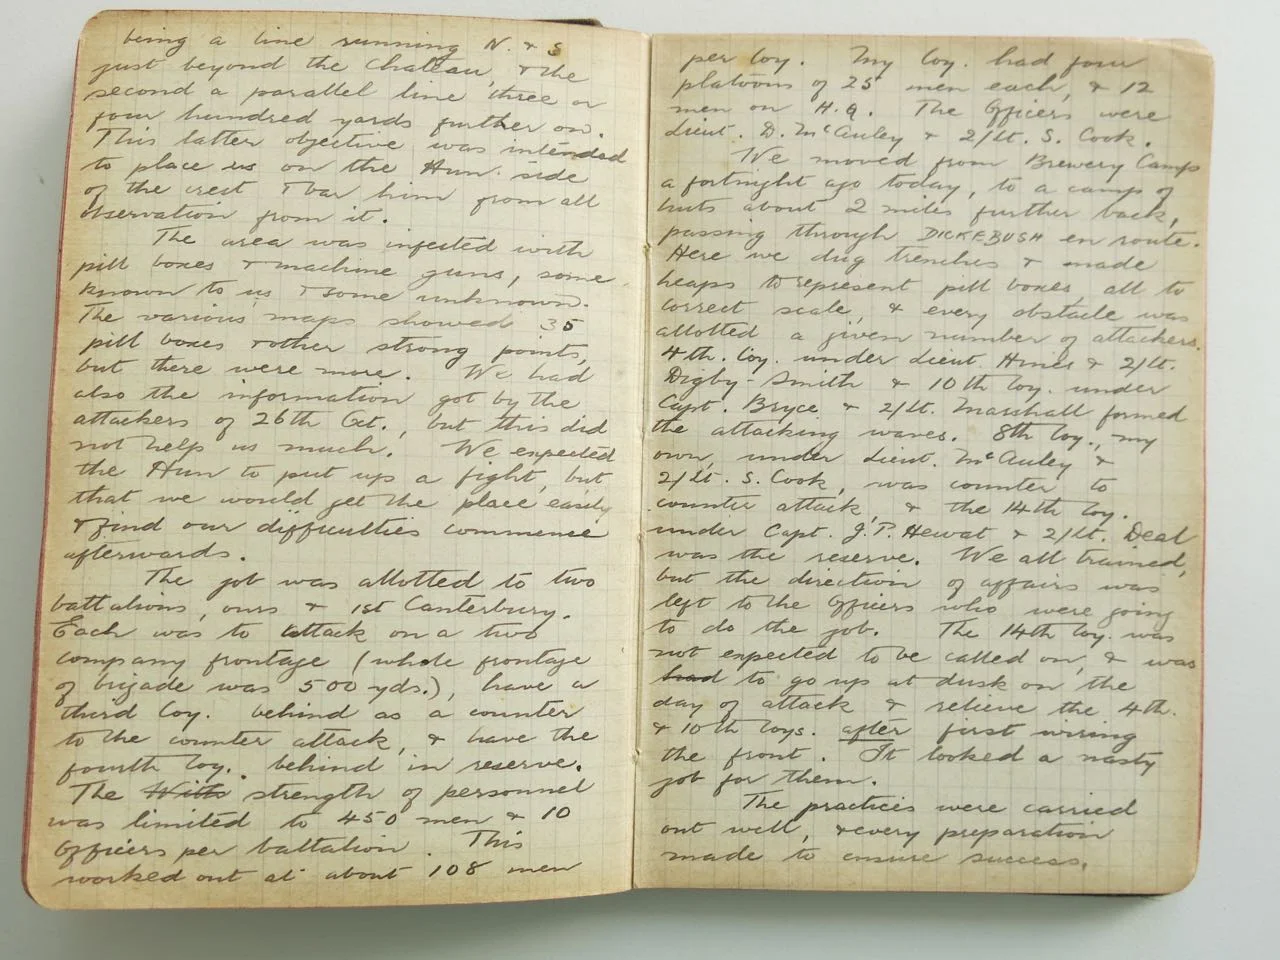 being a line running N. & S
just beyond the Chateau, & the
second a parallel line three or
four hundred yards further on.
This latter objective was intended
to place us on the Hun side
of the crest & bar him from all
observation from it.
The area was infested with
pill boxes & machine guns, some
known to us & some unknown.
The various maps showed 35
pill boxes & other strong points,
but there were more. We had
also the information got by the
attackers of 26th Oct., but this did
not help us much. We expected
the Hun to put up a fight, but
that we would get the place easily
& find our difficulties commence
afterwards.
The job was allotted to two
battalions, ours & 1st Canterbury.
Each was to attack on a two
company frontage (whole frontage
of brigade was 500 yds.), have a
third Coy. behind as a counter
to the counter attack, & have the
fourth Coy. behind in reserve.
The strength of personnel
was limited to 450 men & 10
Officers per battalion. This
worked out at about 108 men
per Coy. My Coy. had four
platoons of 25 men each, & 12
men on H.Q. The Officers were
Lieut. D. McAuley & 2/Lt. S. Cook.
We moved from Brewery Camps
a fortnight ago today, to a camp of
huts about 2 miles further back,
passing through DICKEBUSH en route.
Here we dug trenches & made
heaps to represent pill boxes, all to
correct scale, & every obstacle was
allotted a given number of attackers.
4th. Coy. under Lieut. Hines & 2/Lt.
Digby-Smith & 10th Coy. under
Capt. Bryce & 2/Lt. Marshall formed
the attacking waves. 8th Coy., my
own, under Lieut. McAuley &
2/Lt. S. Cook, was counter to
counter attack, & the 14th Coy.
under Capt. J.P. Hewat & 2/Lt. Deal
was the reserve. We all trained,
but the direction of affairs was
left to the Officers who were going
to do the job. The 14th Coy. was
not expected to be called on, & was
had to go up at dusk on the
day of attack & relieve the 4th.
& 10th Coys. after first wiring
the front. It looked a nasty
job for them.
The practices were carried
out well, & every preparation
made to ensure success.